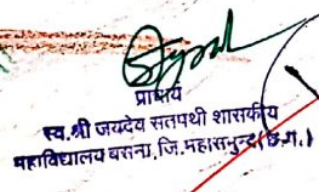 प्राचार्य
स्व.श्री जयदेव सतपथी शासकीय
महाविद्यालय बसना, जि.महासमुन्द (छ.ग.)